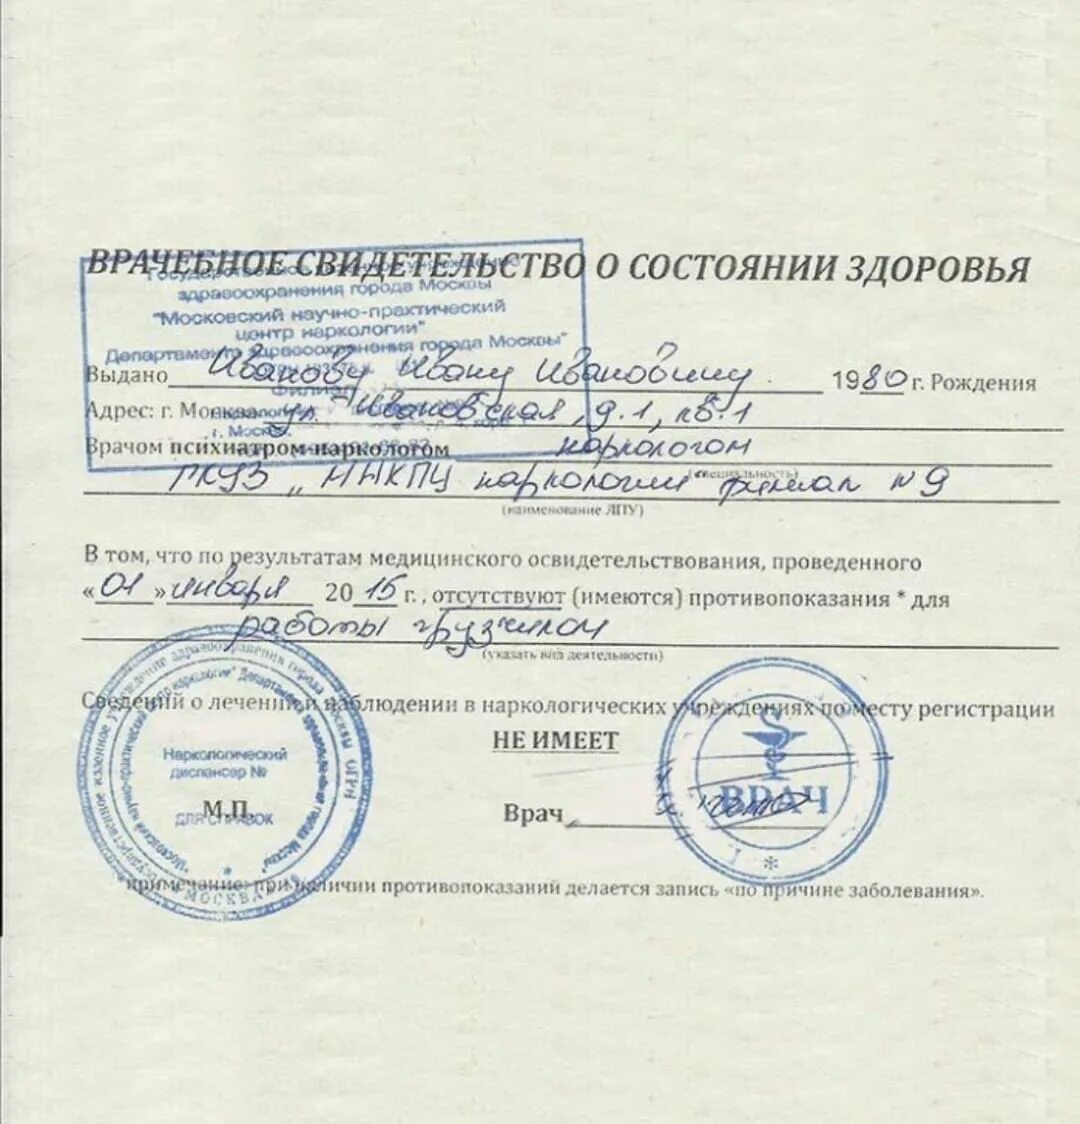 ВРАЧЕБНОЕ СВИДЕТЕЛЬСТВО О СОСТОЯНИИ ЗДОРОВЬЯ
здравоохранения города Москвы
"Московский научно-практический
центр наркологии"
Департамента здравоохранения города Москвы"
Филиал
г. Москва,
Выдано Иванову Ивану Ивановичу 1980 г. Рождения
Адрес: г. Москва ул. Ивановская, д.1, кв.1
Врачом психиатром-наркологом наркологом
(специальность)
ГКУЗ „МНПЦ наркологии филиал №9
(наименование ЛПУ)
В том, что по результатам медицинского освидетельствования, проведенного
«01» января 2015 г., отсутствуют (имеются) противопоказания * для
работы грузчиком
(указать вид деятельности)
Сведений о лечении и наблюдении в наркологических учреждениях по месту регистрации
НЕ ИМЕЕТ
Наркологический
диспансер №
М.П.
ДЛЯ СПРАВОК
МОСКВА
Врач
ВРАЧ
*примечание: при наличии противопоказаний делается запись «по причине заболевания».